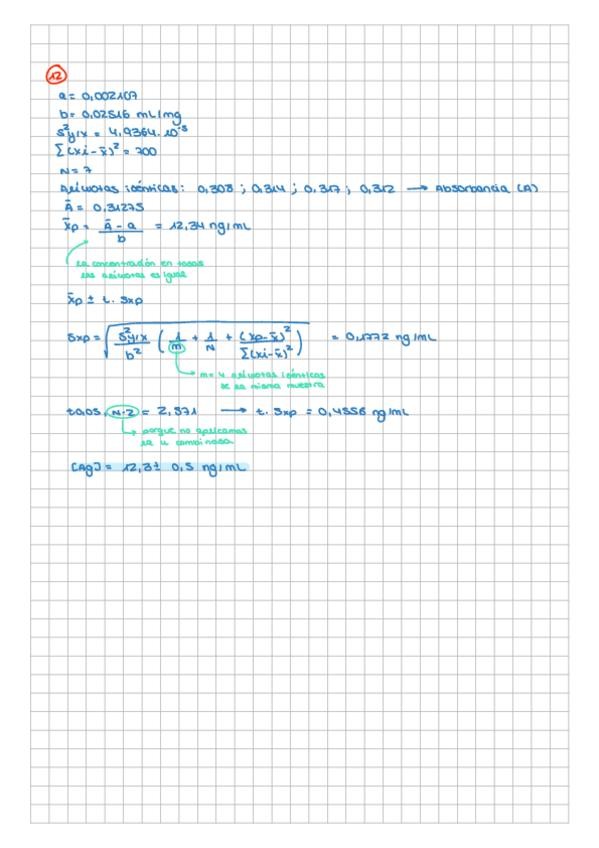 12
a = 0,002107
b = 0,02516 mL/mg
s²y/x = 4,9364·10⁻⁵
Σ(xi-x̄)² = 700
N = 7
Alícuotas idénticas: 0,308 ; 0,314 ; 0,317 ; 0,312 → Absorbancia (A)
Ā = 0,31275
x̄p = (Ā - a)/b = 12,34 ng/mL
la concentración en todas
las alícuotas es igual
x̄p ± t. Sxp
Sxp = √(S²y/x / b² (1/m + 1/N + (xp-x̄)² / Σ(xi-x̄)²)) = 0,1772 ng/mL
m = 4 alícuotas idénticas
de la misma muestra
t0,05, N-2 = 2,571 → t. Sxp = 0,4556 ng/mL
porque no aplicamos
la u combinada
[Ag] = 12,3 ± 0,5 ng/mL